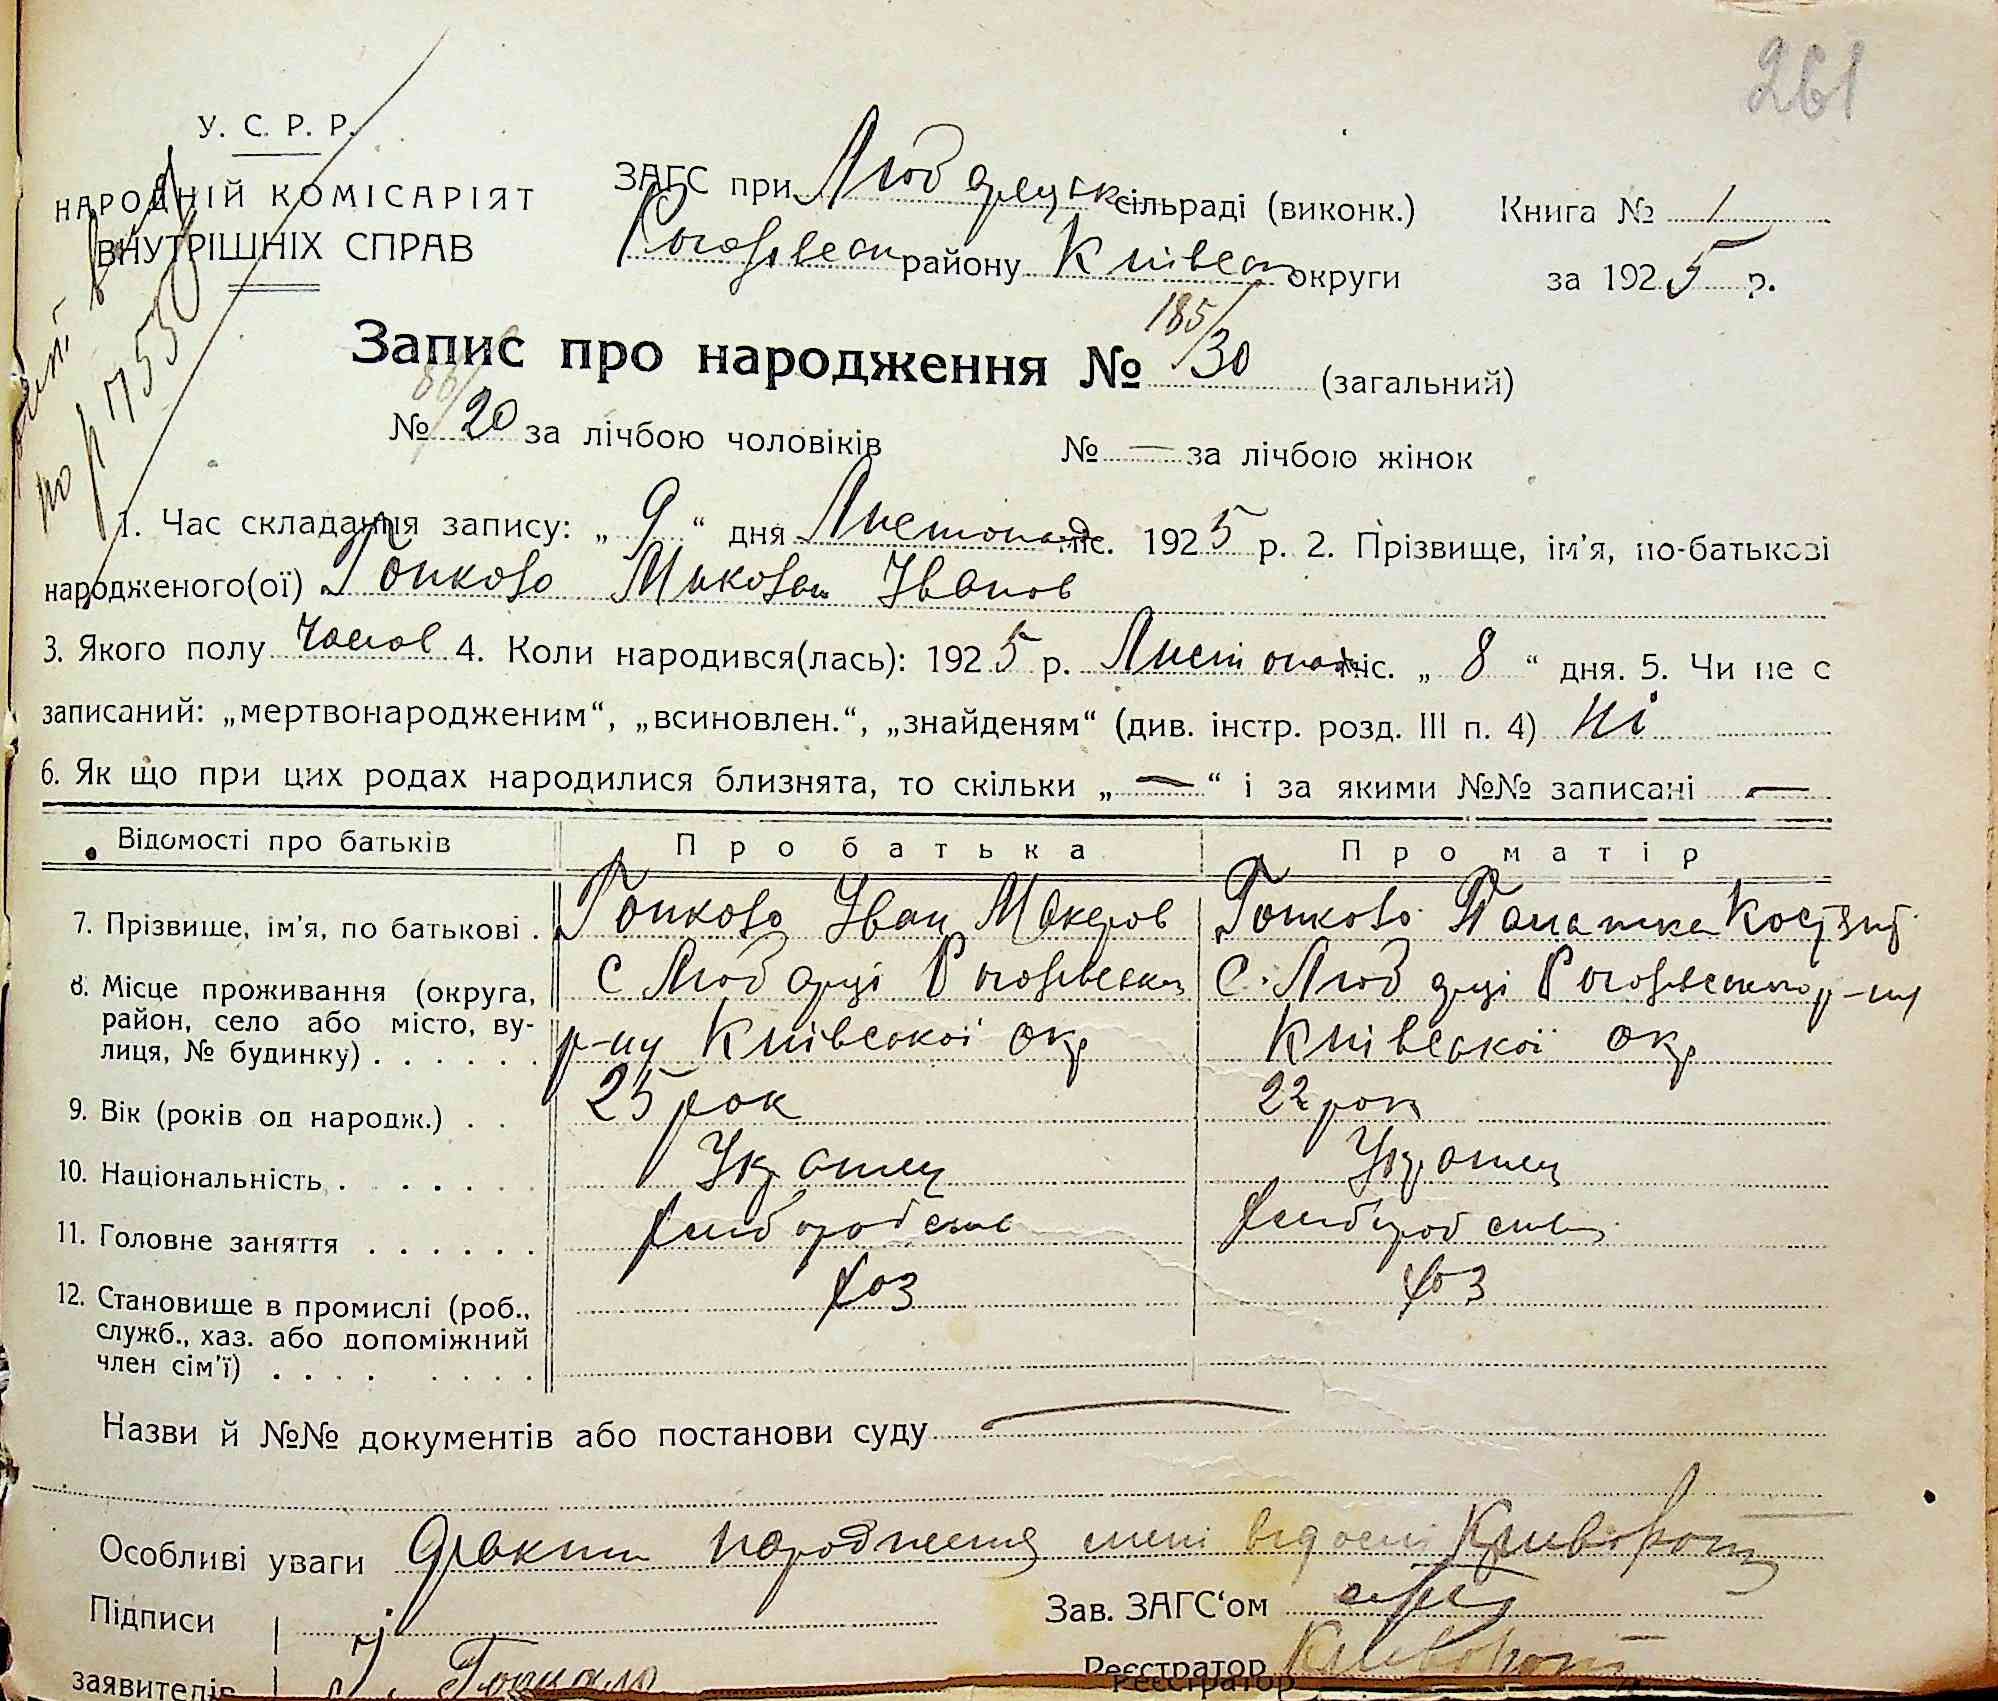 261
У. С. Р. Р.
НАРОДНІЙ КОМІСАРІЯТ
ВНУТРІШНІХ СПРАВ
ЗАГС при Любарецьк сільраді (виконк.) Книга № 1
району Київськ округи за 1925 р.
Запис про народження № 185/30 (загальний)
№ 20 за лічбою чоловіків № — за лічбою жінок
1. Час складання запису: „9“ дня Листопад міс. 1925 р. 2. Прізвище, ім'я, по-батькові
народженого(ої) Миколай Іванов
3. Якого полу Чолов 4. Коли народився(лась): 1925 р. Листопад міс. „8“ дня. 5. Чи не є
записаний: „мертвонародженим“, „всиновлен.“, „знайденям“ (див. інстр. розд. III п. 4) Ні
6. Як що при цих родах народилися близнята, то скільки „—“ і за якими №№ записані —
Відомості про батьків Про батька Про матір
7. Прізвище, ім'я, по батькові . Іван Макаров
8. Місце проживання (округа, с Любарці с. Любарці р-ну
район, село або місто, ву- р-ну Київської окр Київської окр
лиця, № будинку) . . . . . .
9. Вік (років од народж.) . . 25 рок 22 рок
10. Національність . . . . . . Украинец Украинец
11. Головне заняття . . . . . . хлиборобство хлиборобств
12. Становище в промислі (роб., хоз хоз
служб., хаз. або допоміжний
член сім'ї) . . . . . . . .
Назви й №№ документів або постанови суду —
Особливі уваги Факт народження мені відомі
Підписи Зав. ЗАГС‘ом
заявителів Реєстратор
Реєстратор